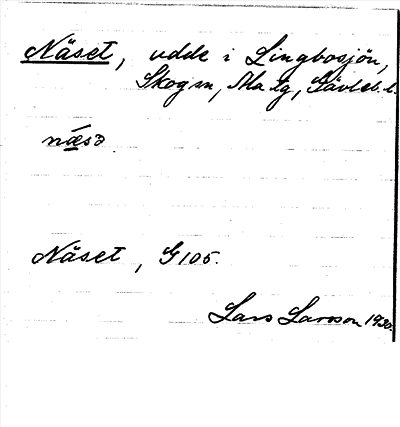 Näset, udde i Lingbosjön,
Skog sn, Ma tg, Gävleb. l.
næsə
Näset, G 105.
Lars Larsson 1930.